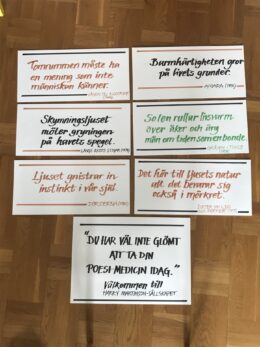 Tomrummen måste ha
en mening som inte
människan känner.
Barmhärtigheten gror
på livets grunder.
ANIARA (1956)
Skymningsljuset
möter gryningen
på havets spegel.
Solen rullar ljusvarm
över åker och äng
män om tiden som bonde.
Ljuset gnistrar in
instinkt i vår själ.
Det hör till ljusets natur
att det bevarar sig
också i mörkret.
"DU HAR VÄL INTE GLÖMT
ATT TA DIN
POESI-MEDICIN IDAG."
Välkommen till
HARRY MARTINSON-SÄLLSKAPET